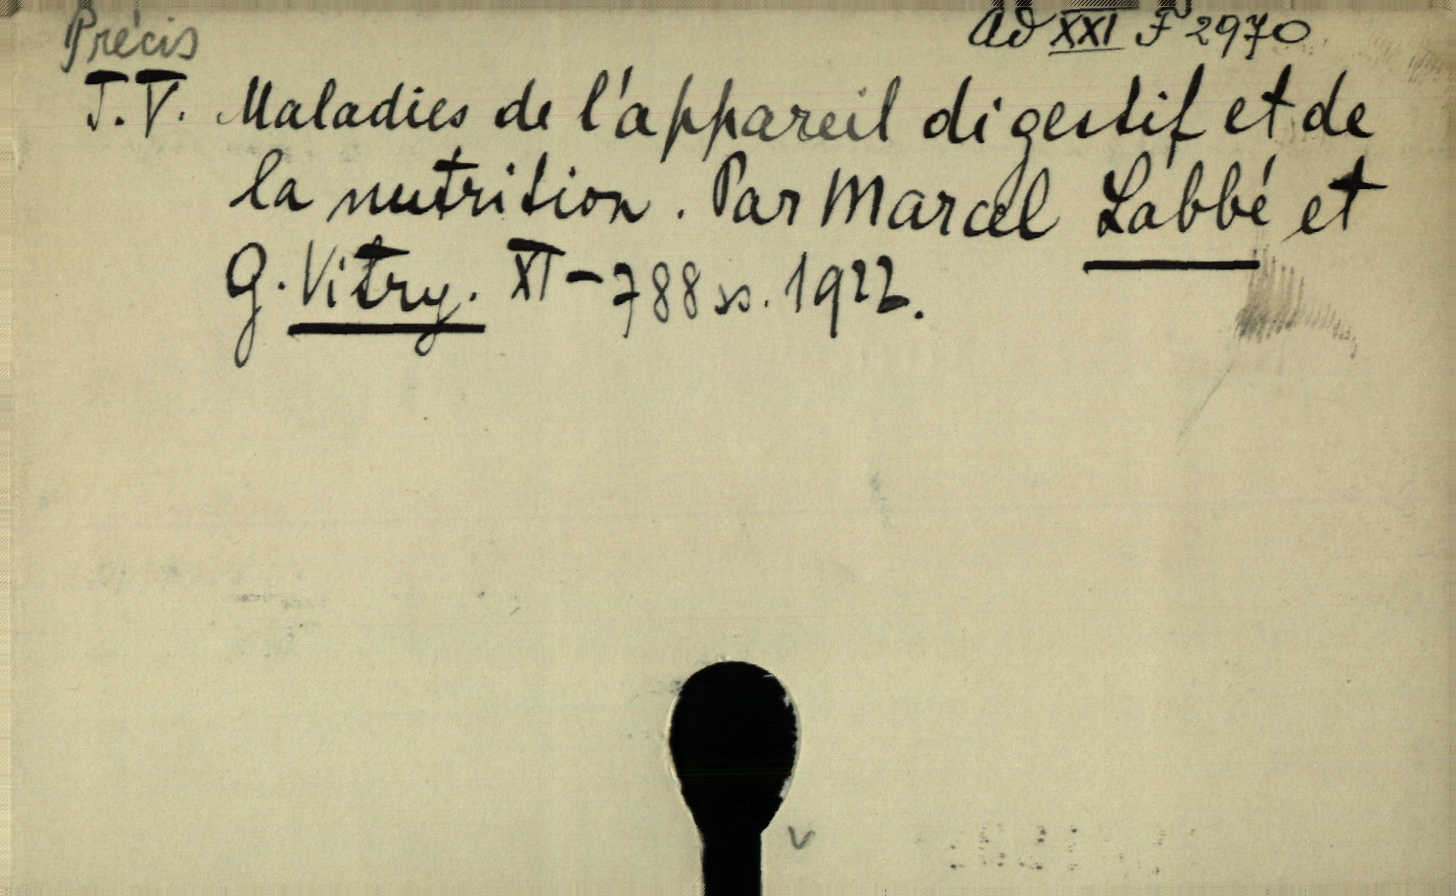 Précis
ad XXI F 2970
T.V. Maladies de l'appareil digestif et de
la nutrition. Par Marcel Labbé et
G. Vitry. XI-788 ss. 1922.
v